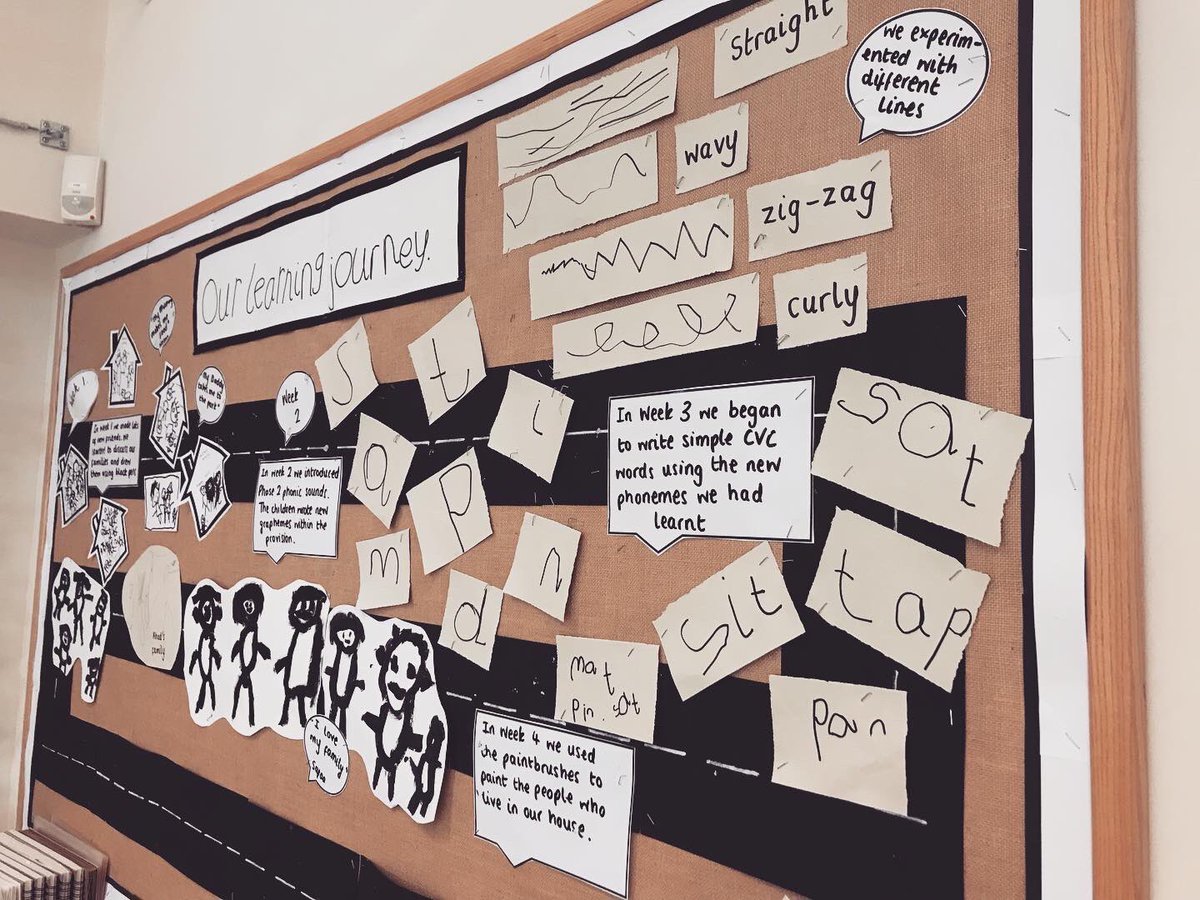 Our learning journey.
straight
wavy
zig-zag
curly
We experim-
ented with
different
lines
Week 1
In week 1 we made lots
of new friends. We
started to discuss our
families and drew
them using black pens
My Daddy
takes me to
the park
Week
2
In week 2 we introduced
Phase 2 phonic sounds.
The children wrote new
graphemes within the
provision.
s
t
i
a
p
m
d
n
In week 3 we began
to write simple CVC
words using the new
phonemes we had
learnt
sat
tap
sit
mat
pin. sat
pan
family
I love
my family
In week 4 we used
the paintbrushes to
paint the people who
live in our house.